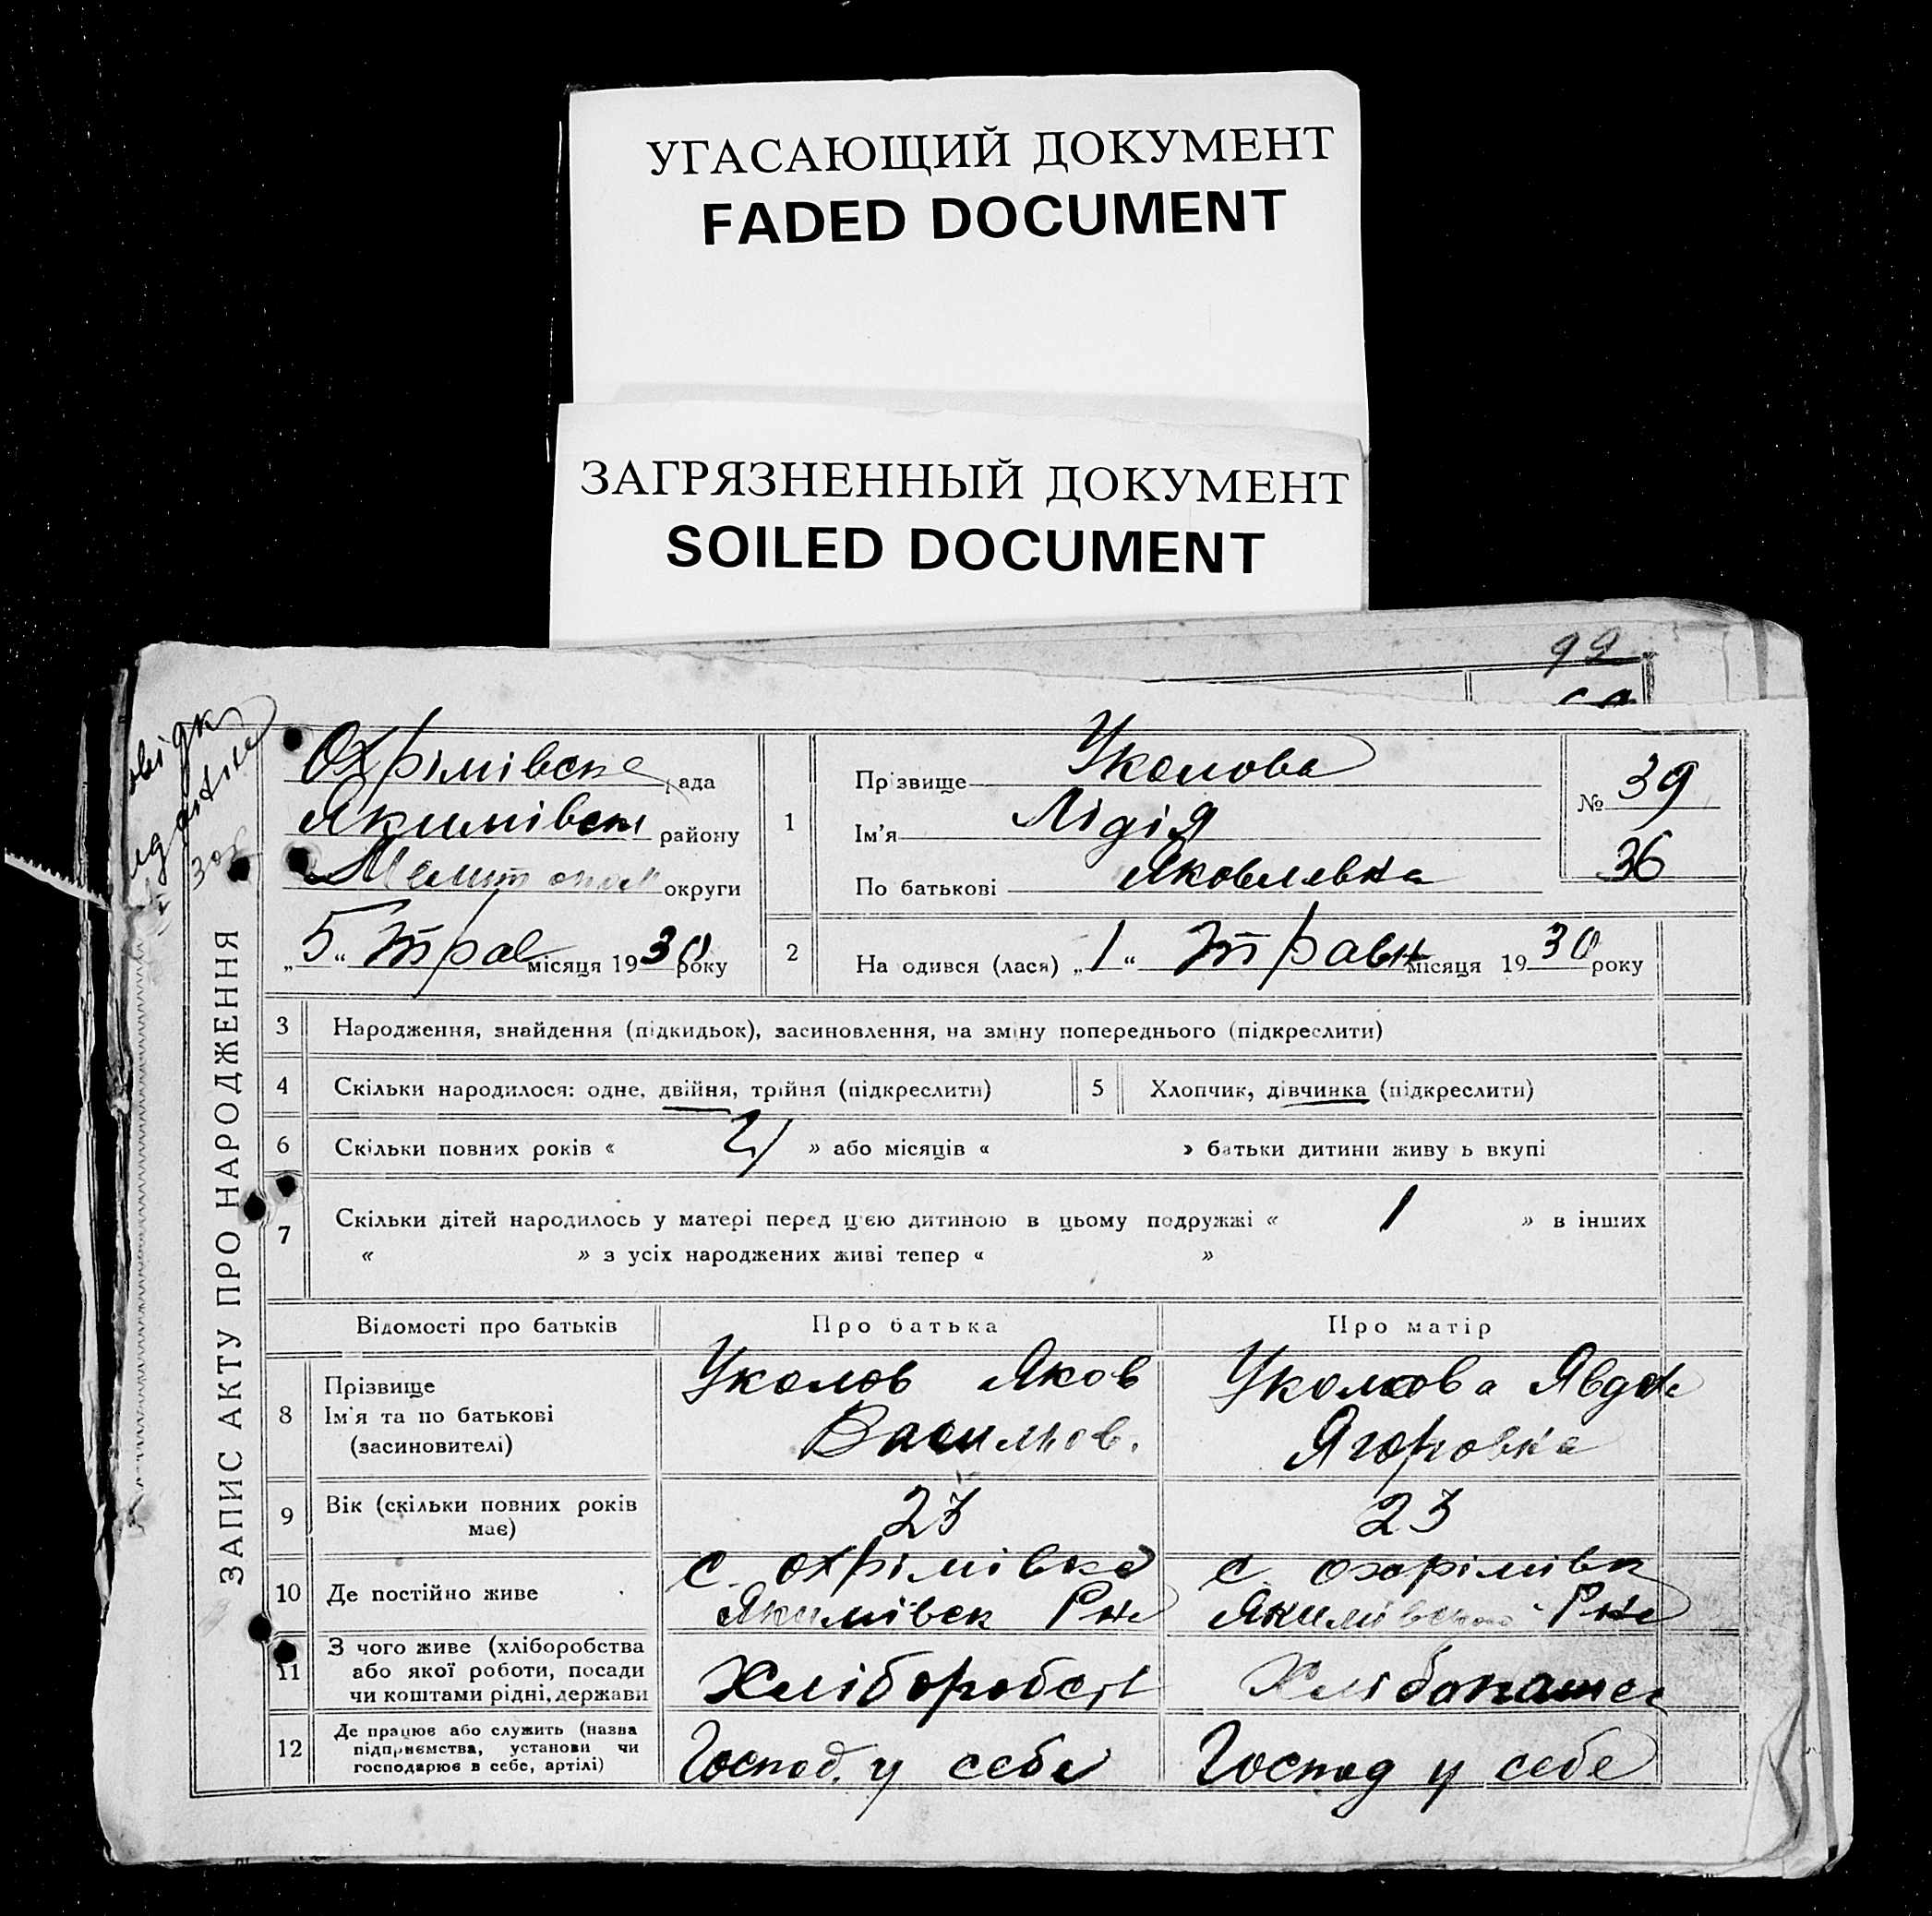 УГАСАЮЩИЙ ДОКУМЕНТ
FADED DOCUMENT
ЗАГРЯЗНЕННЫЙ ДОКУМЕНТ
SOILED DOCUMENT
99
ЗАПИС АКТУ ПРО НАРОДЖЕННЯ
Охрімівска рада
Якимівськ району
Мелитопол округи
„5“ трав місяця 1930 року
1
Прізвище Уколова
Ім'я Лідія
По батькові Яковлевна
№ 39
36
2
Народився (лася) „1“ травн місяця 1930 року
3 Народження, знайдення (підкидьок), засиновлення, на зміну попереднього (підкреслити)
4 Скільки народилося: одне, двійня, трійня (підкреслити) 5 Хлопчик, дівчинка (підкреслити)
6 Скільки повних років « » або місяців « » батьки дитини живуть вкупі
7 Скільки дітей народилось у матері перед цією дитиною в цьому подружжі « 1 » в інших
« » з усіх народжених живі тепер « »
Відомості про батьків Про батька Про матір
8 Прізвище
Ім'я та по батькові
(засиновителі)
Уколов Яков
Васильов.
Уколова Явдок
Ягоровна
9 Вік (скільки повних років
має)
23
23
10 Де постійно живе
с. Охрімівка
Якимівск Рна
с. Охрімівк
Якимівського Рна
11 З чого живе (хліборобства
або якої роботи, посади
чи коштами рідні, держави
Хліборобст
Хлібопашес
12 Де працює або служить (назва
підприємства, установи чи
господарює в себе, артілі)
Господ. у себе
Господ у себе